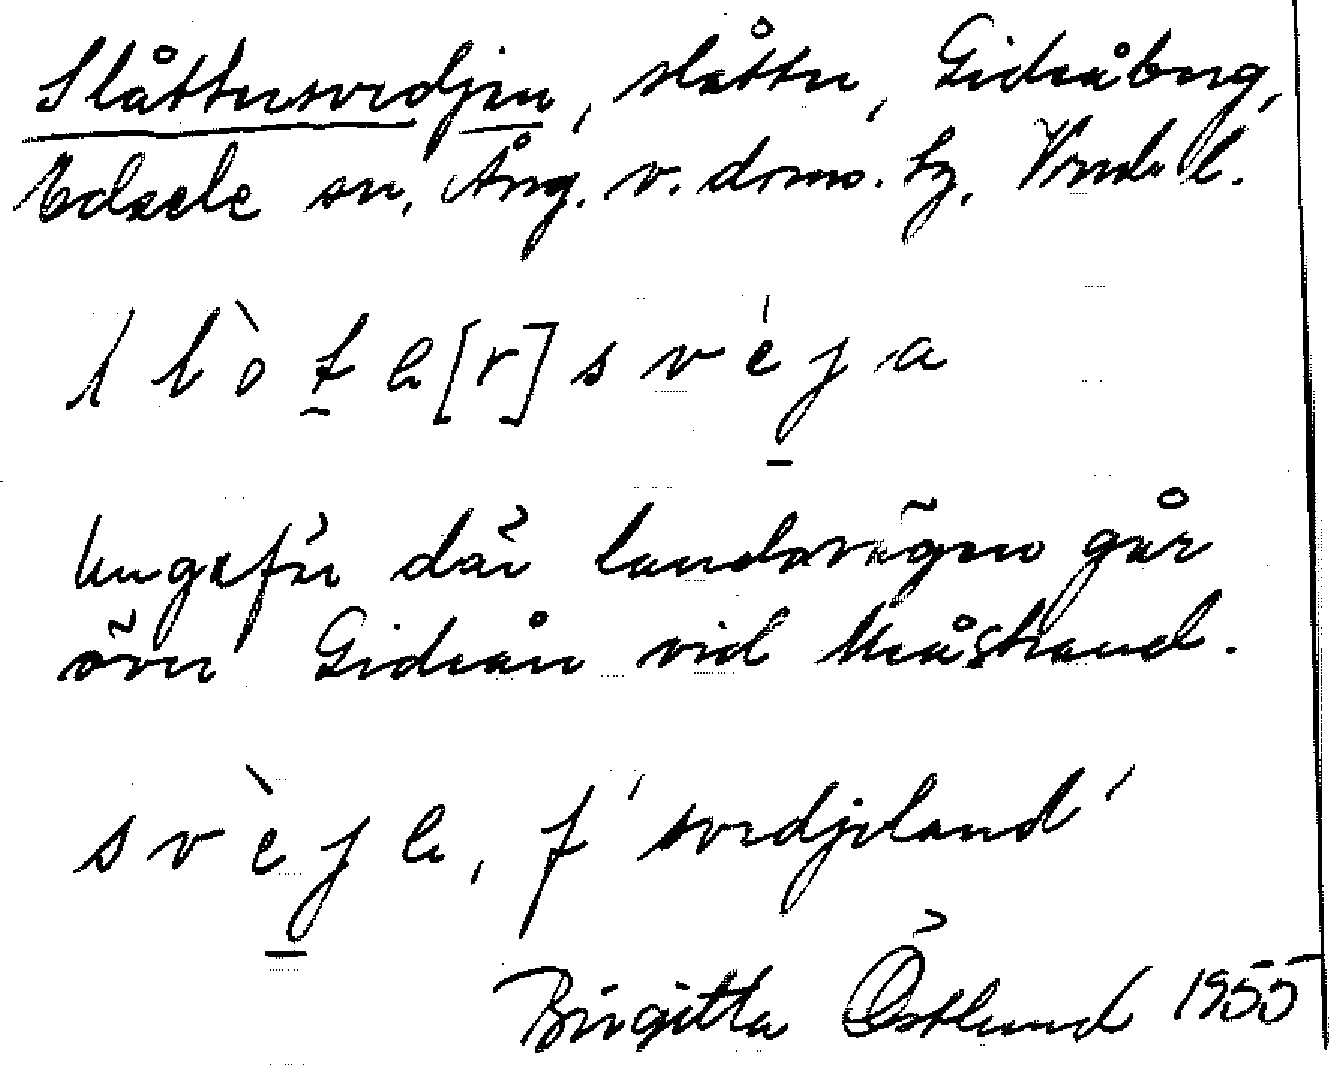 Slåttersvedjen, slåtter, Gideåberg,
Edsele sn, Ång. v. doms. hg. Vnrl l.
l l ò t e [r] s v é j a
Ungefär där landsvägen går
över Gideån vid Meåstrand.
s v è j e, f 'svedjeland'
Birgitta Östlund 1955